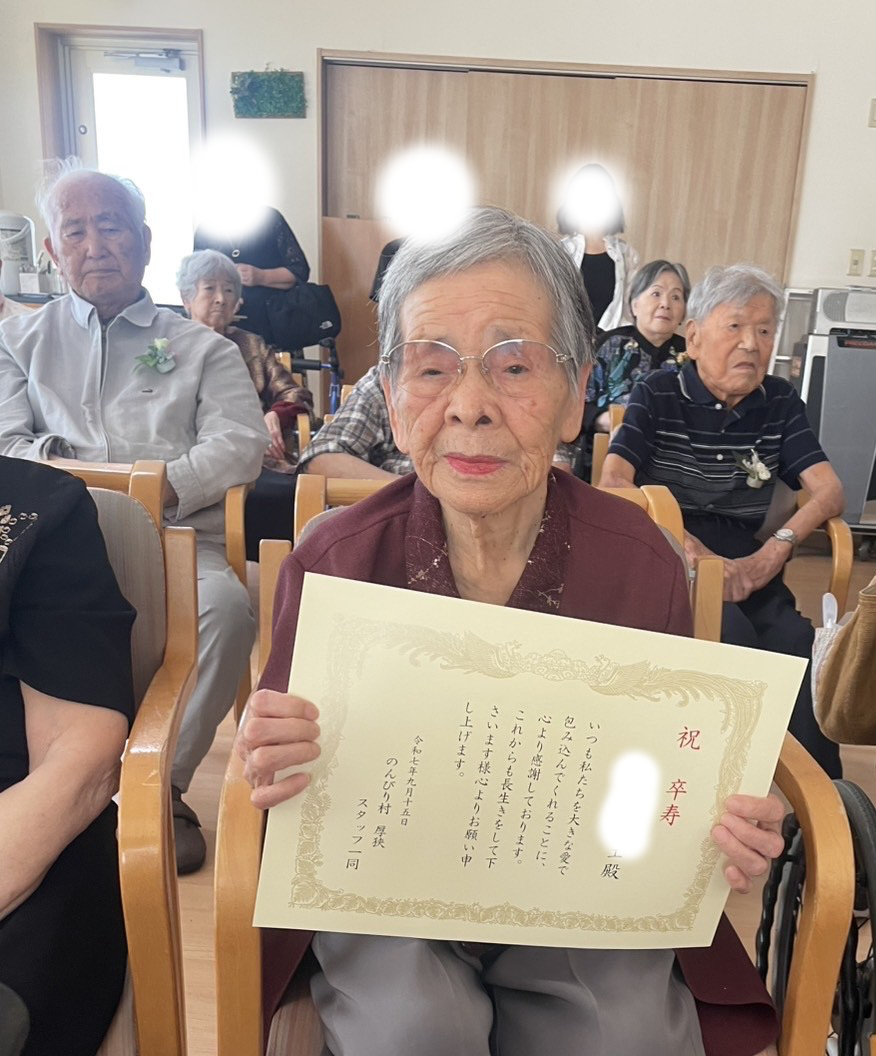 祝 卒寿
殿
いつも私たちを大きな愛で
包み込んでくれることに、
心より感謝しております。
これからも長生きをして下
さいます様心よりお願い申
し上げます。
令和七年九月十五日
のんびり村 厚狭
スタッフ一同